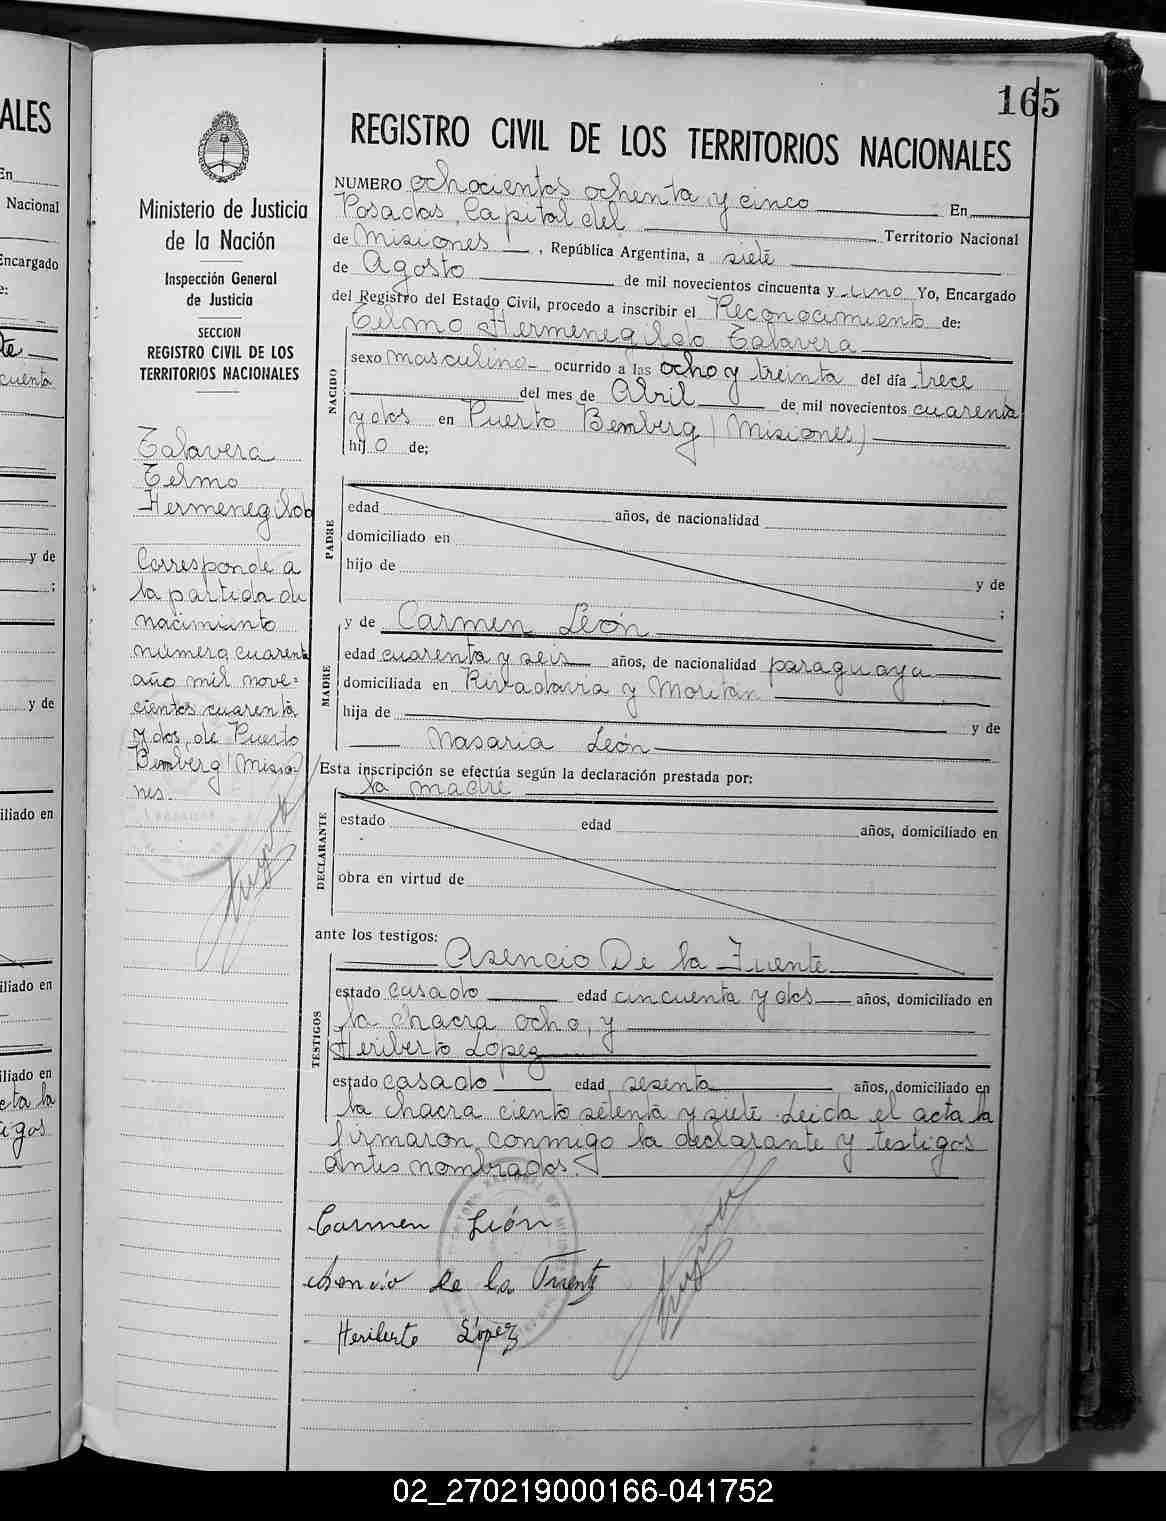 ALES
En
Nacional
Encargado
e:
te
cuenta
y de
;
y de
iliado en
iliado en
iliado en
eta la
igos
165
Ministerio de Justicia
de la Nación
Inspección General
de Justicia
SECCION
REGISTRO CIVIL DE LOS
TERRITORIOS NACIONALES
Talavera
Telmo
Hermenegildo
Corresponde a
la partida de
nacimiento
número cuarenta
año mil nove=
cientos cuarenta
y dos, de Puerto
Bemberg (Misio-
nes.
REGISTRO CIVIL DE LOS TERRITORIOS NACIONALES
NUMERO ochocientos ochenta y cinco En
Posadas, Capital del Territorio Nacional
de Misiones, República Argentina, a siete
de Agosto de mil novecientos cincuenta y uno Yo, Encargado
del Registro del Estado Civil, procedo a inscribir el Reconocimiento de:
Telmo Hermenegildo Talavera
NACIDO
sexo masculino ocurrido a las ocho y treinta del día trece
del mes de Abril de mil novecientos cuarenta
y dos en Puerto Bemberg (Misiones)
hijo de;
PADRE
edad años, de nacionalidad
domiciliado en
hijo de y de
;
MADRE
y de Carmen León
edad cuarenta y seis años, de nacionalidad paraguaya
domiciliada en Rivadavia y Moritán
hija de y de
Nasaria León
Esta inscripción se efectúa según la declaración prestada por:
la madre
DECLARANTE
estado edad años, domiciliado en
obra en virtud de
ante los testigos:
Asencio De la Fuente
TESTIGOS
estado casado edad cincuenta y dos años, domiciliado en
la chacra ocho, y
Heriberto López
estado casado edad sesenta años, domiciliado en
la chacra ciento setenta y siete. Leida el acta la
firmaron conmigo la declarante y testigos
antes nombrados.
Carmen León
Asencio De la Fuente
Heriberto López
02_270219000166-041752